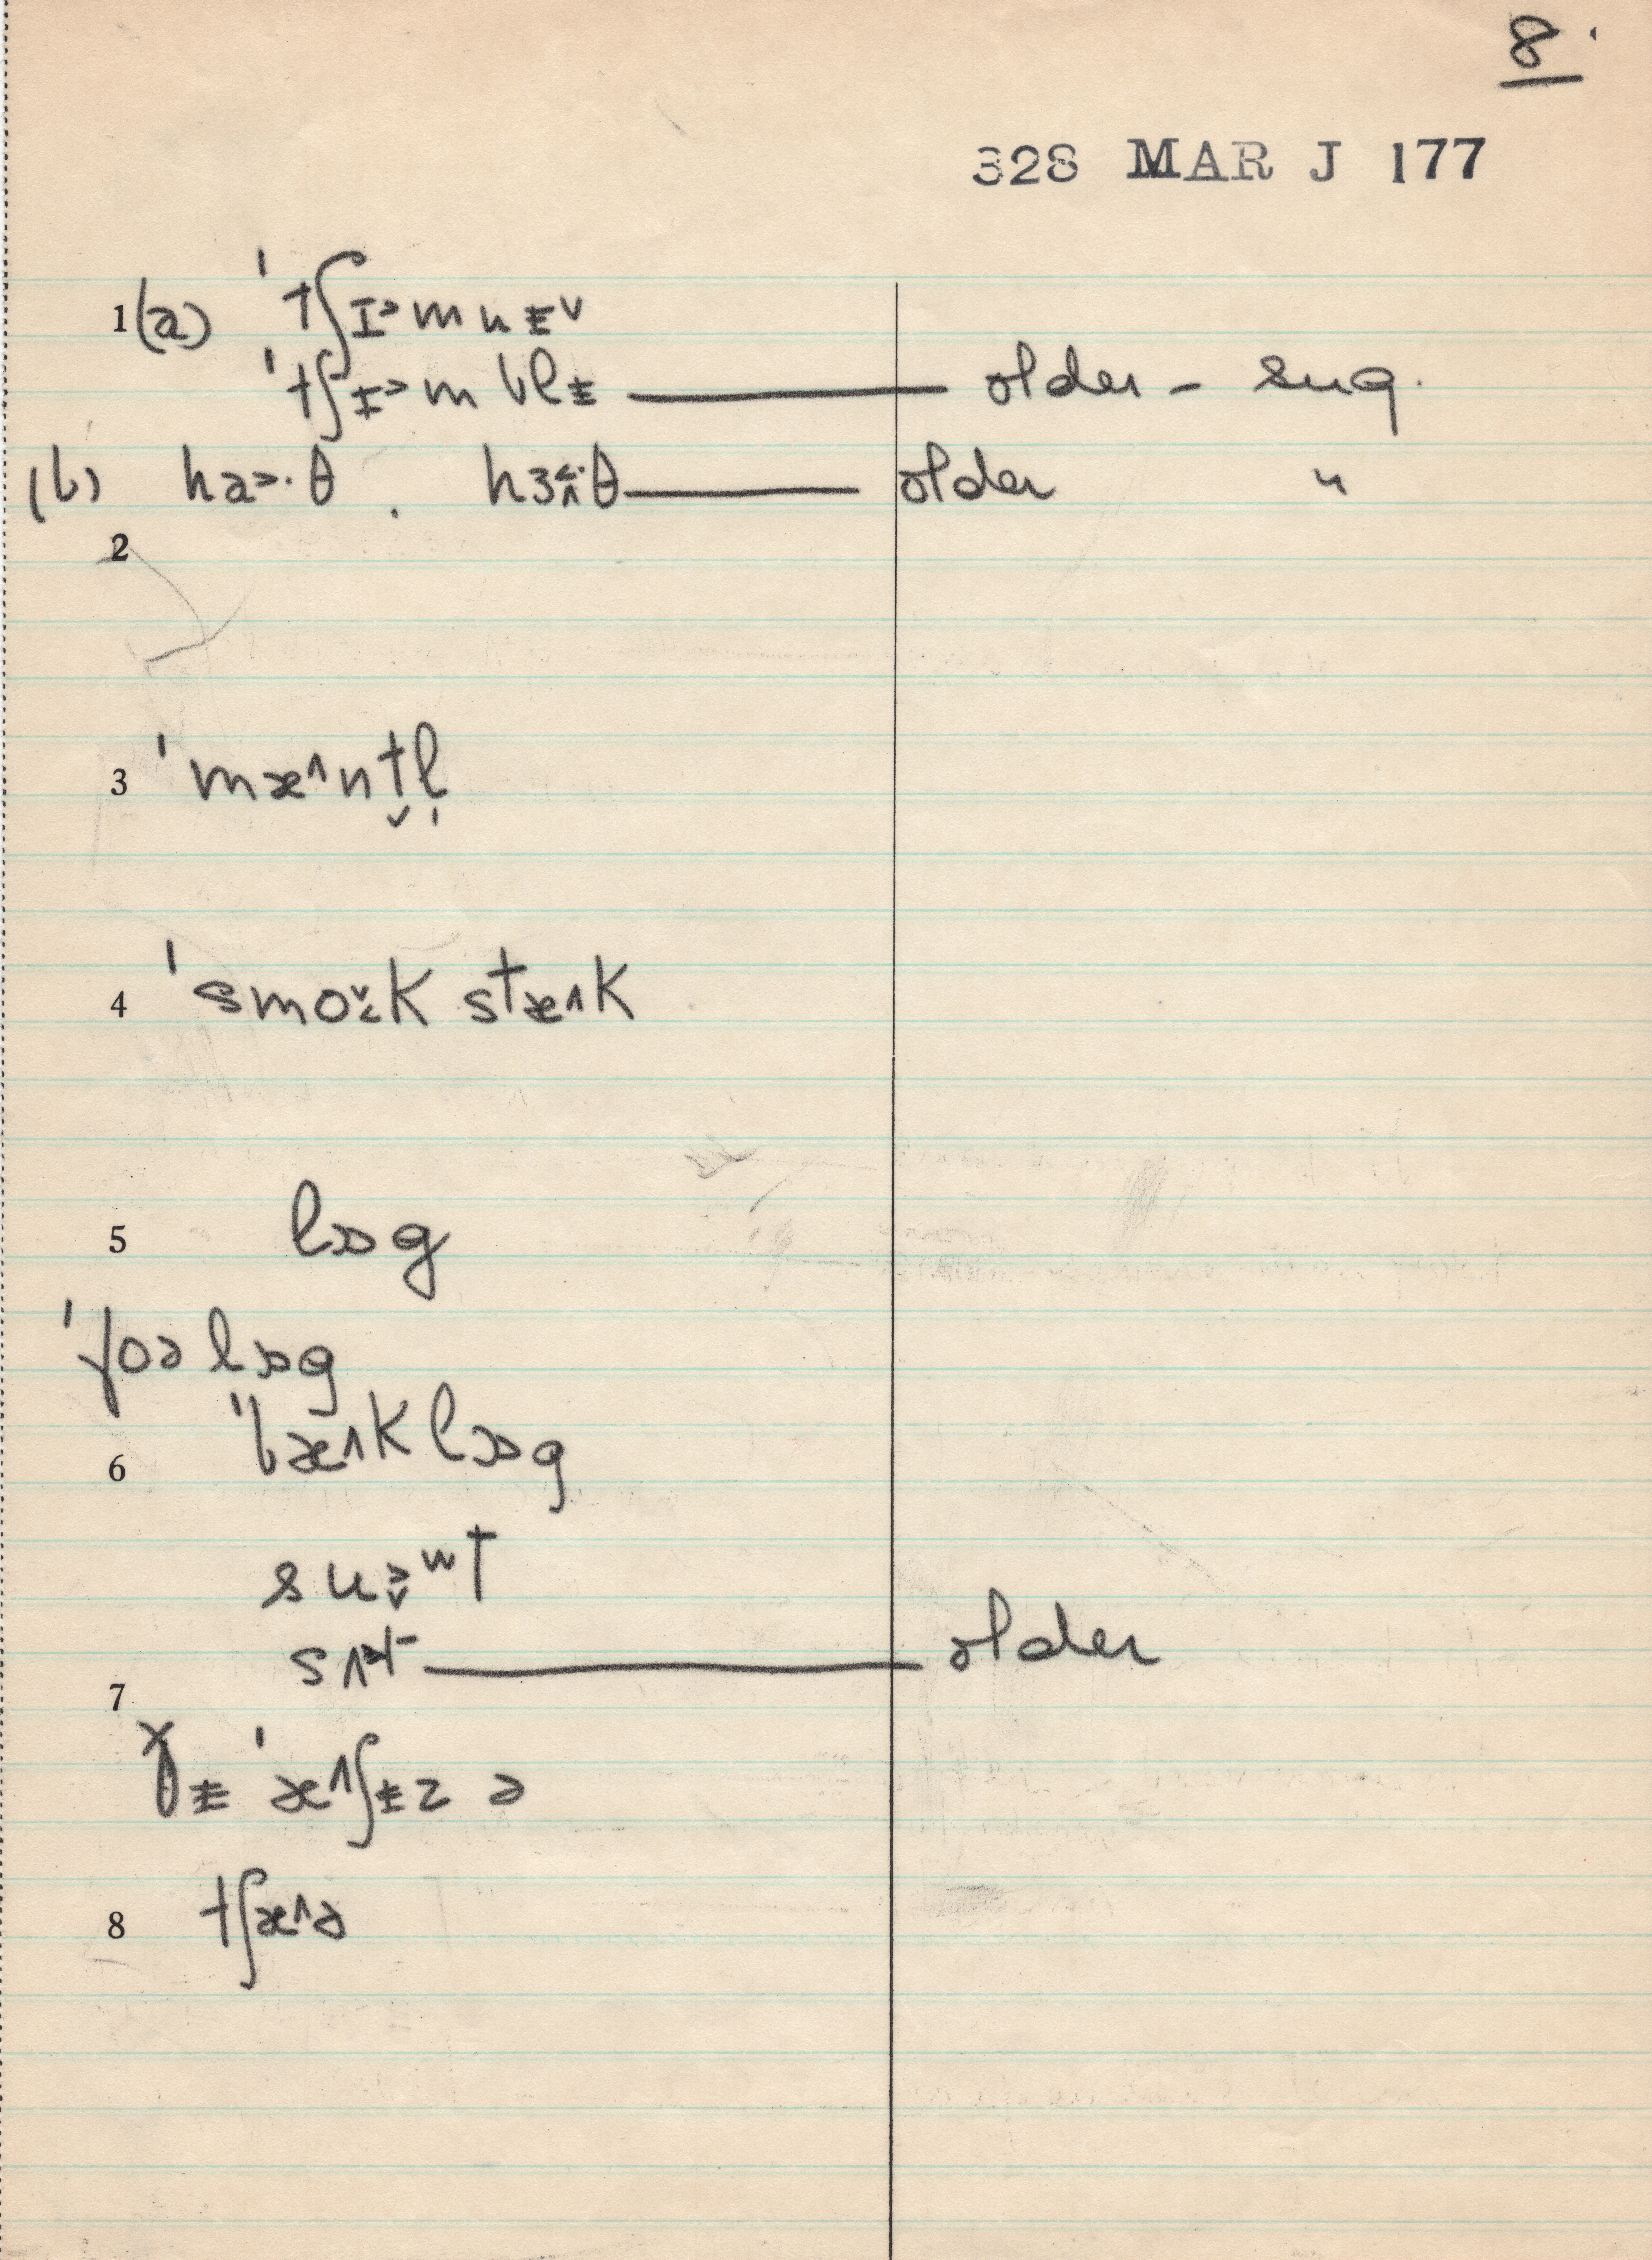 8.
328 MAR J 177
1(a) ˈtʃɪ˃mnɨ˅
ˈtʃɪ˃mblɨ — older - sug.
(b) ha˃·θ . hɜ˂·θ — older "
2
3 ˈmæ˄nt̬l̩
4 ˈsmoɪ̌k stæ˄k
5 lɒg
ˈfoə lɒg
6 ˈbæ˄k lɒg
suʷt
sʌt — older
7
ðɨ ˈæ˄ʃɨz ə
8 tʃæ˄ə